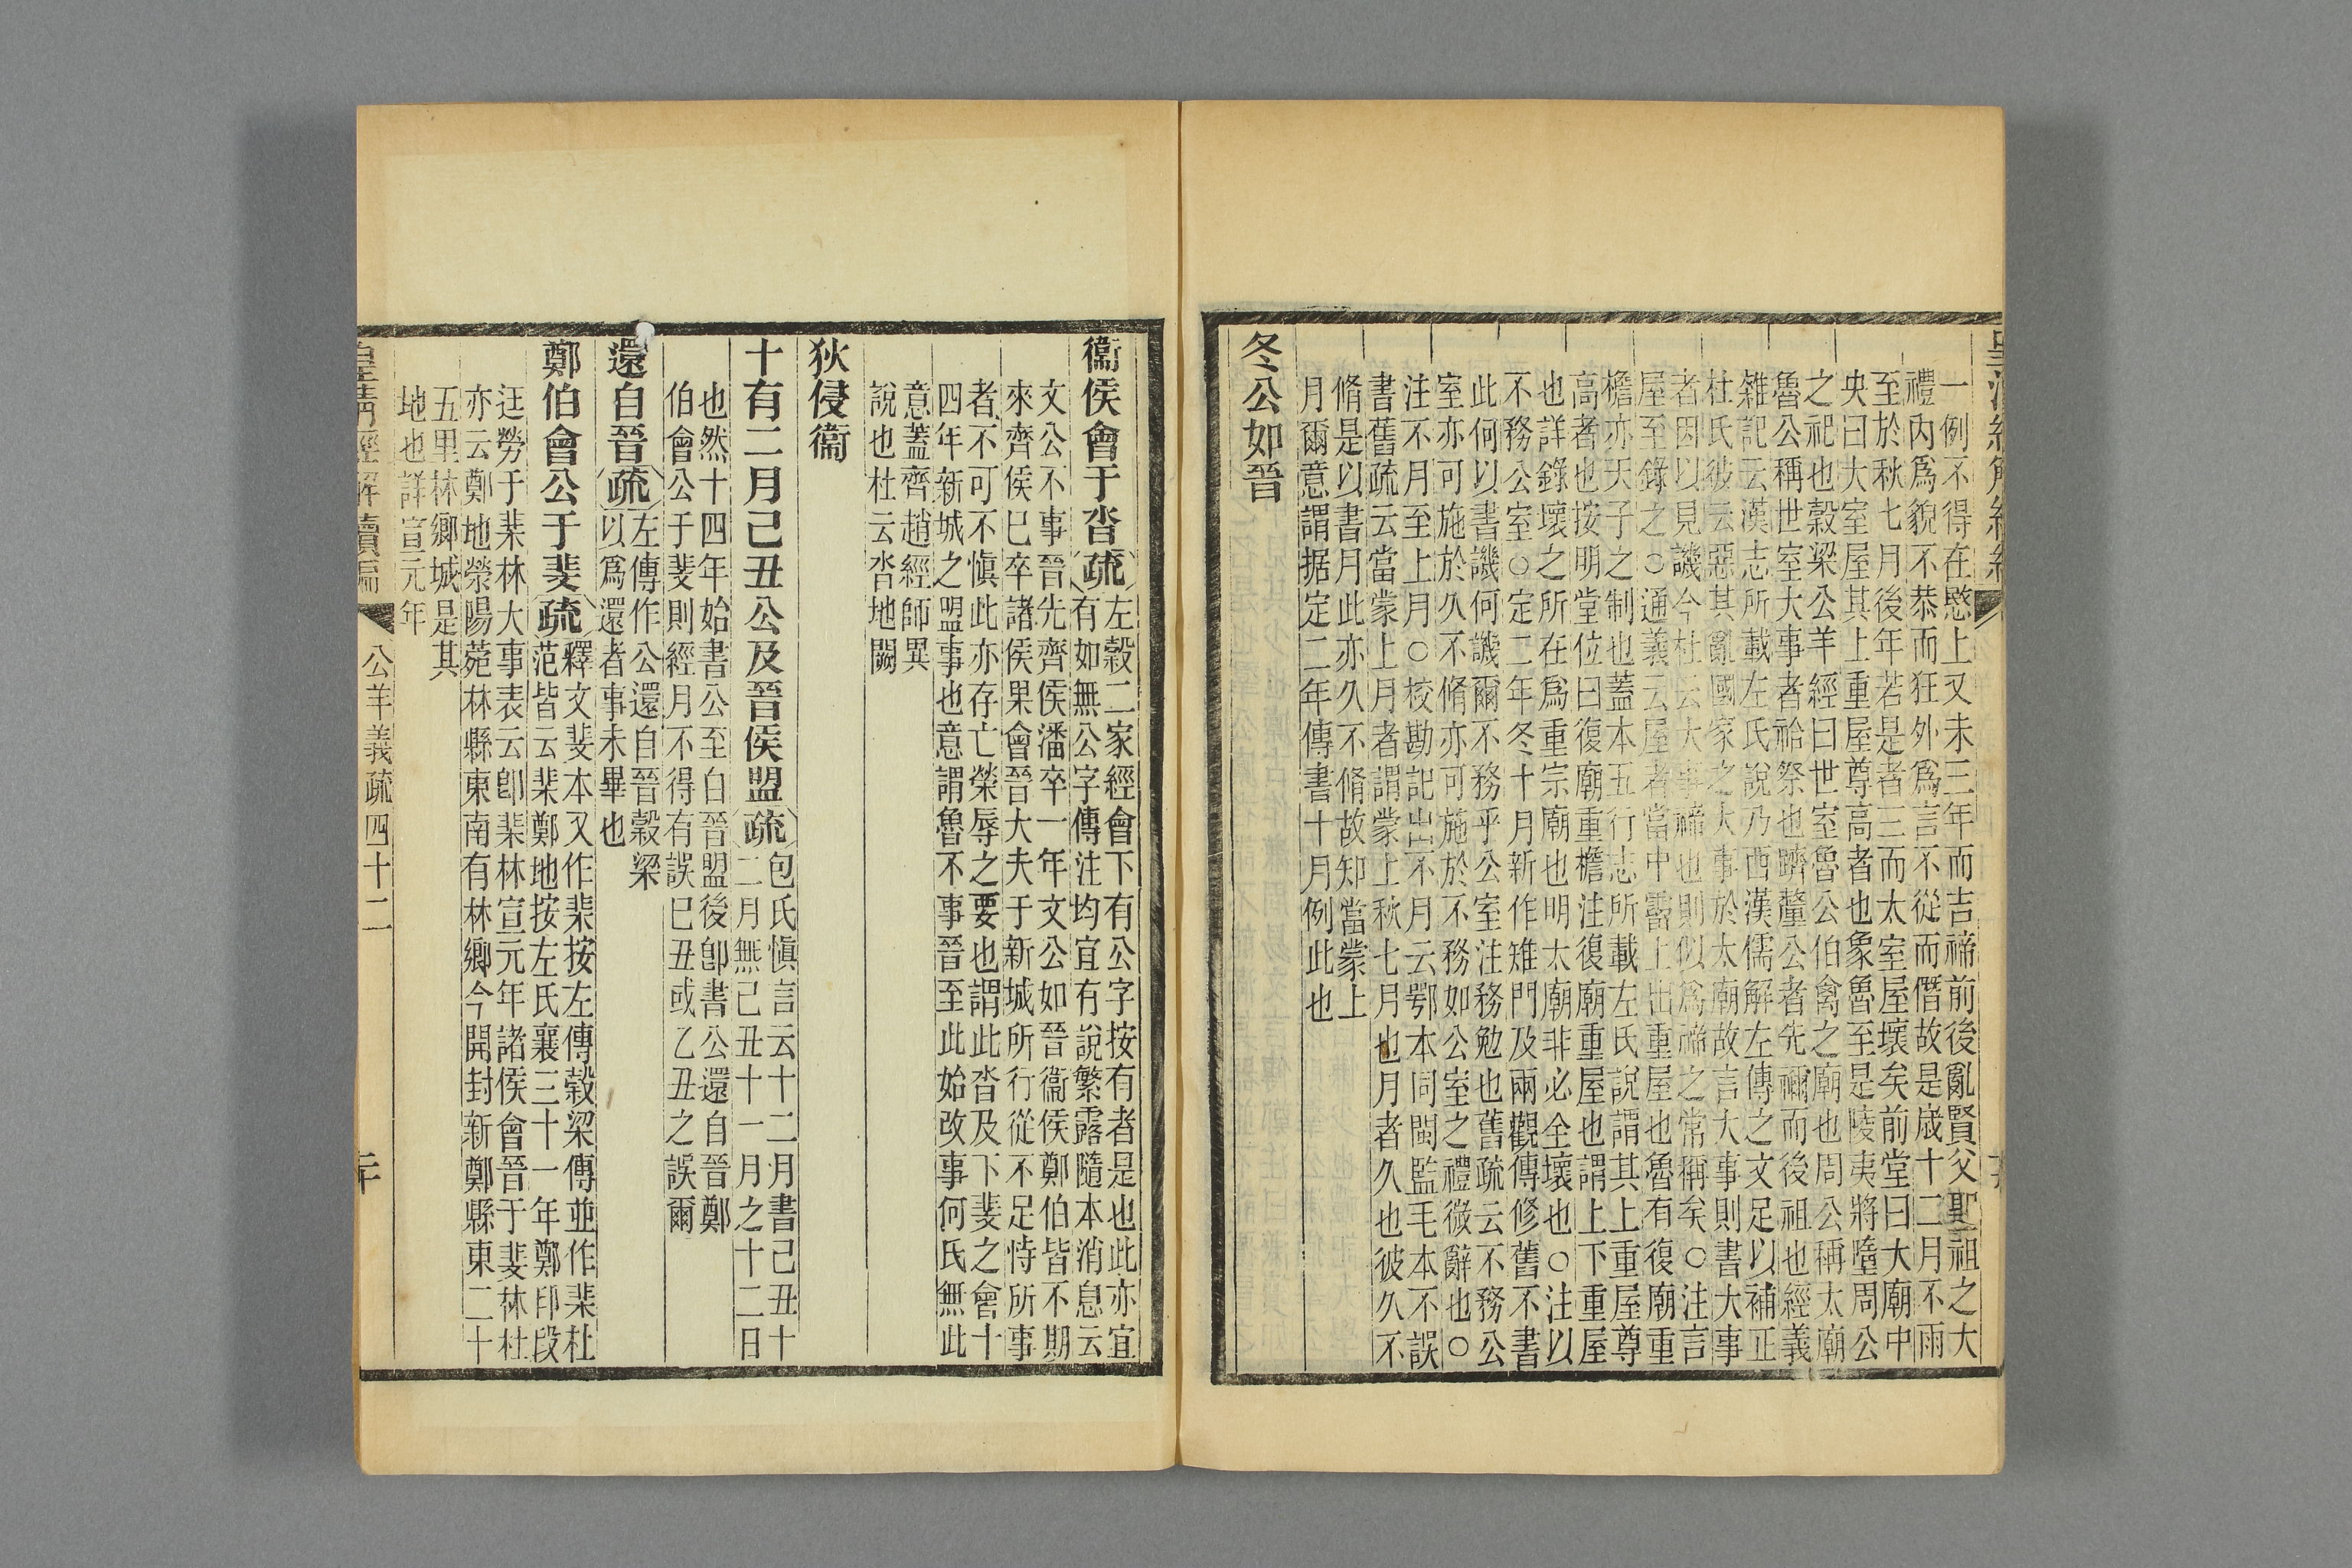 一例不得在愍上又未三年而吉禘前後亂賢父聖祖之大
禮內爲貌不恭而狂外爲言不從而僭故是歲十二月不雨
至於秋七月後年若是者三而太室屋壞矣前堂曰大廟中
央曰大室屋其上重屋尊高者也象魯至是陵夷將墮周公
之祀也穀梁公羊經曰世室魯公伯禽之廟也周公稱太廟
魯公稱世室大事者祫祭也躋釐公者先禰而後祖也經義
雜記云漢志所載左氏說乃西漢儒解左傳之文足以補正
杜氏彼云惡其亂國家之大事於太廟故言大事則書大事
者因以見譏今杜云大事禘也則似爲禘之常稱矣○注言
屋至錄之○通義云屋者當中霤上出重屋也魯有復廟重
檐亦天子之制也蓋本五行志所載左氏說謂其上重屋尊
高者也按明堂位曰復廟重檐注復廟重屋也謂上下重屋
也詳錄壞之所在爲重宗廟也明太廟非必全壞也○注以
不務公室○定二年冬十月新作雉門及兩觀傳修舊不書
此何以書譏何譏爾不務乎公室注務勉也舊疏云不務公
室亦可施於久不脩亦可施於不務如公室之禮微辭也○
注不月至上月○校勘記出不月云鄂本同閩監毛本不誤
書舊疏云當蒙上月者謂蒙上秋七月也月者久也彼久不
脩是以書月此亦久不脩故知當蒙上
月爾意謂据定二年傳書十月例此也
冬公如晉
衞侯會于沓疏左穀二家經會下有公字按有者是也此亦宜
有如無公字傳注均宜有說繁露隨本消息云
文公不事晉先齊侯潘卒一年文公如晉衞侯鄭伯皆不期
來齊侯已卒諸侯果會晉大夫于新城所行從不足恃所事
者不可不愼此亦存亡榮辱之要也謂此沓及下斐之會十
四年新城之盟事也意謂魯不事晉至此始改事何氏無此
意蓋齊趙經師異
說也杜云沓地闕
狄侵衞
十有二月己丑公及晉侯盟疏包氏愼言云十二月書己丑十
二月無己丑十一月之十二日
也然十四年始書公至自晉盟後卽書公還自晉鄭
伯會公于斐則經月不得有誤己丑或乙丑之誤爾
還自晉疏左傳作公還自晉穀梁
以爲還者事未畢也
鄭伯會公于斐疏釋文斐本又作棐按左傳穀梁傳並作棐杜
范皆云棐鄭地按左氏襄三十一年鄭印段
迋勞于棐林大事表云卽棐林宣元年諸侯會晉于斐林杜
亦云鄭地滎陽菀林縣東南有林鄉今開封新鄭縣東二十
五里林鄉城是其
地也詳宣元年
皇淸經解續編 公羊義疏四十二